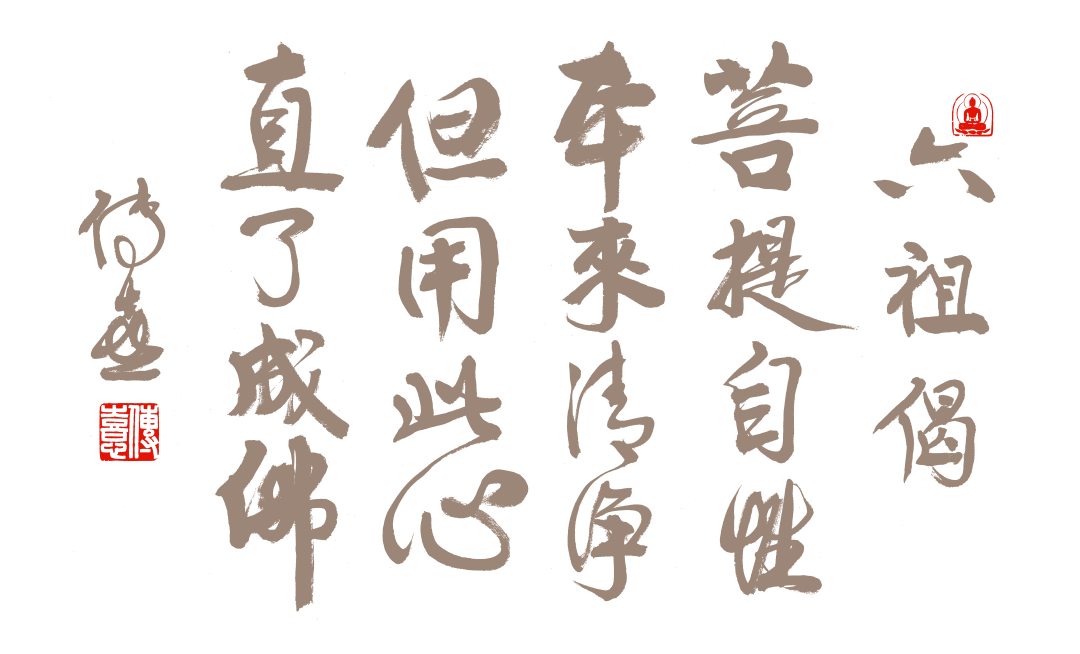 六祖偈
菩提自性
本來清淨
但用此心
直了成佛
傳憙
傳憙